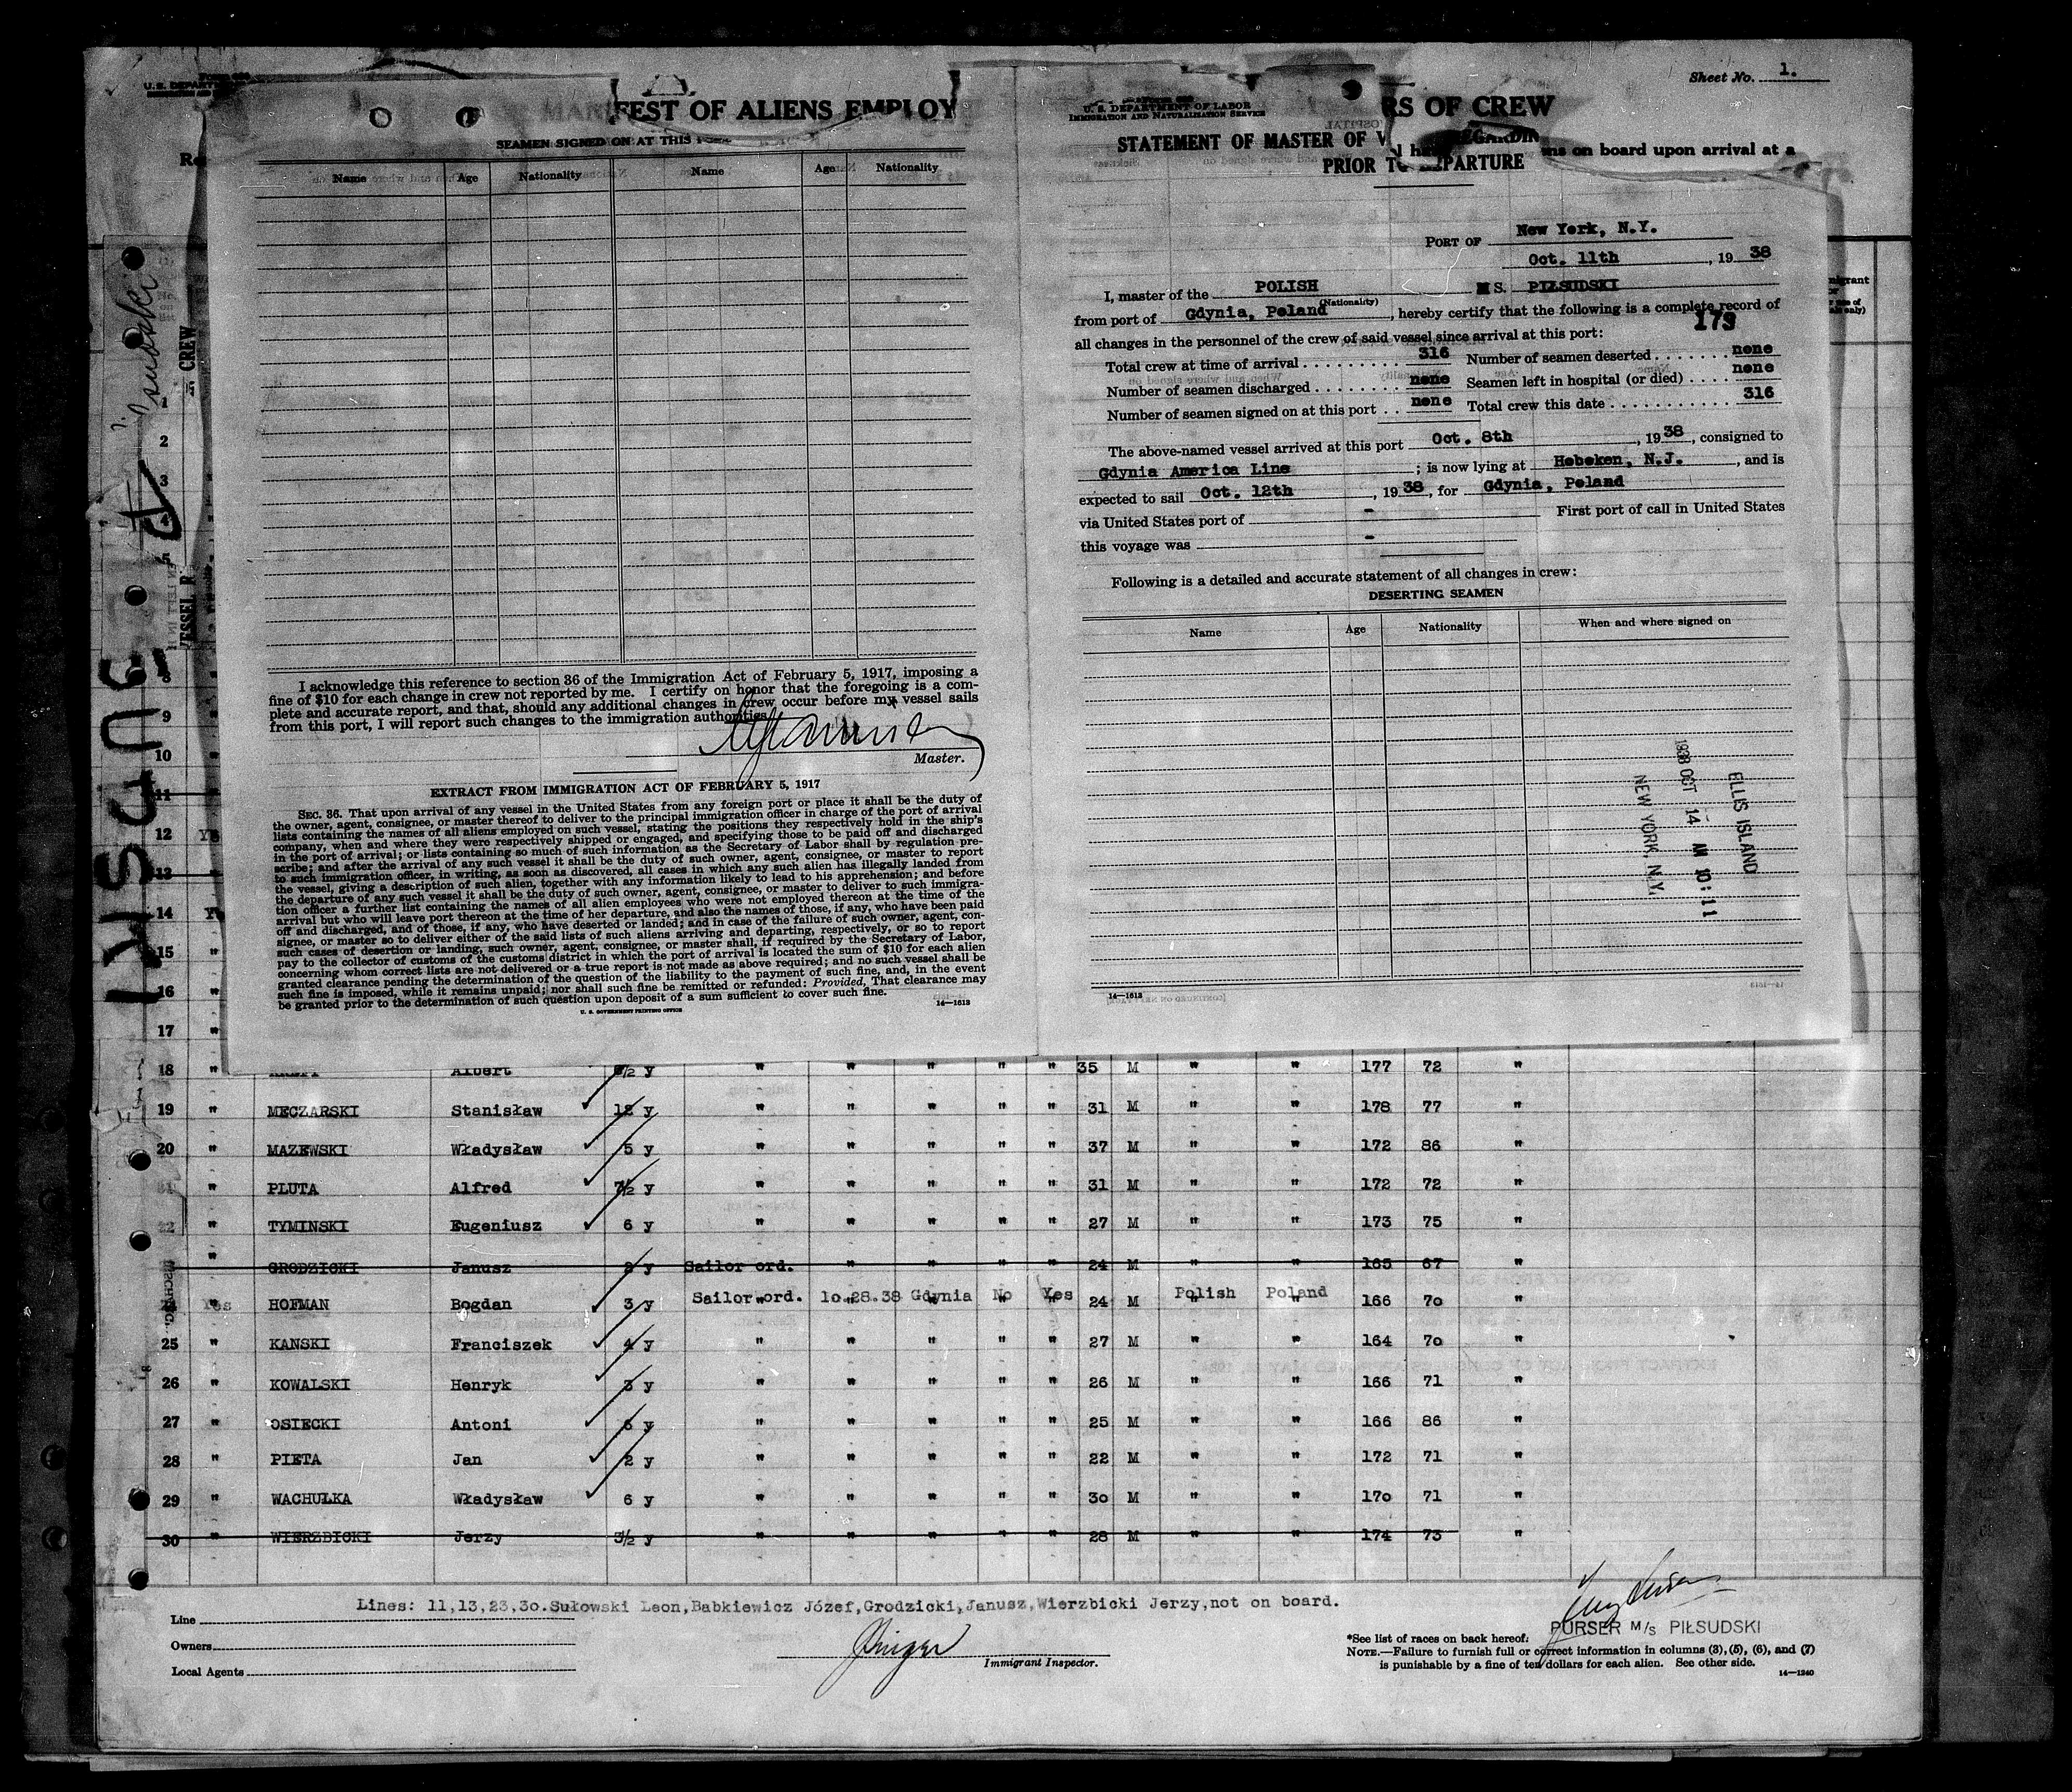 Sheet No. 1.
FEST OF ALIENS EMPLOY
RS OF CREW
ns on board upon arrival at a
SEAMEN SIGNED ON AT THIS
Name Age Nationality Name Age Nationality
I acknowledge this reference to section 36 of the Immigration Act of February 5, 1917, imposing a
fine of $10 for each change in crew not reported by me. I certify on honor that the foregoing is a com-
plete and accurate report, and that, should any additional changes in crew occur before my vessel sails
from this port, I will report such changes to the immigration authorities.
Master.
EXTRACT FROM IMMIGRATION ACT OF FEBRUARY 5, 1917
SEC. 36. That upon arrival of any vessel in the United States from any foreign port or place it shall be the duty of
the owner, agent, consignee, or master thereof to deliver to the principal immigration officer in charge of the port of arrival
lists containing the names of all aliens employed on such vessel, stating the positions they respectively hold in the ship's
company, when and where they were respectively shipped or engaged, and specifying those to be paid off and discharged
in the port of arrival; or lists containing so much of such information as the Secretary of Labor shall by regulation pre-
scribe; and after the arrival of any such vessel it shall be the duty of such owner, agent, consignee, or master to report
to such immigration officer, in writing, as soon as discovered, all cases in which any such alien has illegally landed from
the vessel, giving a description of such alien, together with any information likely to lead to his apprehension; and before
the departure of any such vessel it shall be the duty of such owner, agent, consignee, or master to deliver to such immigra-
tion officer a further list containing the names of all alien employees who were not employed thereon at the time of the
arrival but who will leave port thereon at the time of her departure, and also the names of those, if any, who have been paid
off and discharged, and of those, if any, who have deserted or landed; and in case of the failure of such owner, agent, con-
signee, or master so to deliver either of the said lists of such aliens arriving and departing, respectively, or so to report
such cases of desertion or landing, such owner, agent, consignee, or master shall, if required by the Secretary of Labor,
pay to the collector of customs of the customs district in which the port of arrival is located the sum of $10 for each alien
concerning whom correct lists are not delivered or a true report is not made as above required; and no such vessel shall be
granted clearance pending the determination of the question of the liability to the payment of such fine, and, in the event
such fine is imposed, while it remains unpaid; nor shall such fine be remitted or refunded: Provided, That clearance may
be granted prior to the determination of such question upon deposit of a sum sufficient to cover such fine.
U. S. GOVERNMENT PRINTING OFFICE 14—1613
U. S. DEPARTMENT OF LABOR
IMMIGRATION AND NATURALIZATION SERVICE
STATEMENT OF MASTER OF V
PRIOR TO DEPARTURE
PORT OF New York, N.Y.
Oct. 11th, 19 38
I, master of the POLISH MS. PIŁSUDSKI
(Nationality)
from port of Gdynia, Poland, hereby certify that the following is a complete record of
179
all changes in the personnel of the crew of said vessel since arrival at this port:
Total crew at time of arrival 316 Number of seamen deserted none
Number of seamen discharged none Seamen left in hospital (or died) none
Number of seamen signed on at this port none Total crew this date 316
The above-named vessel arrived at this port Oct. 8th, 19 38, consigned to
Gdynia America Line; is now lying at Hoboken, N.J., and is
expected to sail Oct. 12th, 19 38, for Gdynia, Poland
via United States port of - First port of call in United States
this voyage was -
Following is a detailed and accurate statement of all changes in crew:
DESERTING SEAMEN
Name Age Nationality When and where signed on
ELLIS ISLAND
1938 OCT 14 AM 10:11
NEW YORK, N.Y.
14—1613
CREW
VESSEL
1
2
3
4
5
8
9
10
11
12
13
14
15 "
16 "
17 "
18 " Albert ½ y " " " " " 35 M " " 177 72 "
19 " MECZARSKI Stanisław 12 y " " " " " 31 M " " 178 77 "
20 " MAZEWSKI Władysław 5 y " " " " " 37 M " " 172 86 "
21 " PLUTA Alfred 7½ y " " " " " 31 M " " 172 72 "
22 " TYMINSKI Eugeniusz 6 y " " " " " 27 M " " 173 75 "
" GRODZICKI Janusz 2 y Sailor ord. " " " " 24 M " " 165 67
24 Yes HOFMAN Bogdan 3 y Sailor ord. 10.28.38 Gdynia No Yes 24 M Polish Poland 166 70 "
25 " KANSKI Franciszek 4 y " " " " " 27 M " " 164 70 "
26 " KOWALSKI Henryk 3 y " " " " " 26 M " " 166 71 "
27 " OSIECKI Antoni 6 y " " " " " 25 M " " 166 86 "
28 " PIETA Jan 2 y " " " " " 22 M " " 172 71 "
29 " WACHUŁKA Władysław 6 y " " " " " 30 M " " 170 71 "
30 " WIERZBICKI Jerzy 3½ y " " " " " 28 M " " 174 73 "
Lines: 11,13,23,30.Sułowski Leon,Babkiewicz Józef,Grodzicki,Janusz,Wierzbicki Jerzy,not on board.
Line
Owners
Local Agents
Immigrant Inspector.
PURSER M/s PIŁSUDSKI
*See list of races on back hereof.
NOTE.—Failure to furnish full or correct information in columns (3), (5), (6), and (7)
is punishable by a fine of ten dollars for each alien. See other side.
14—1240